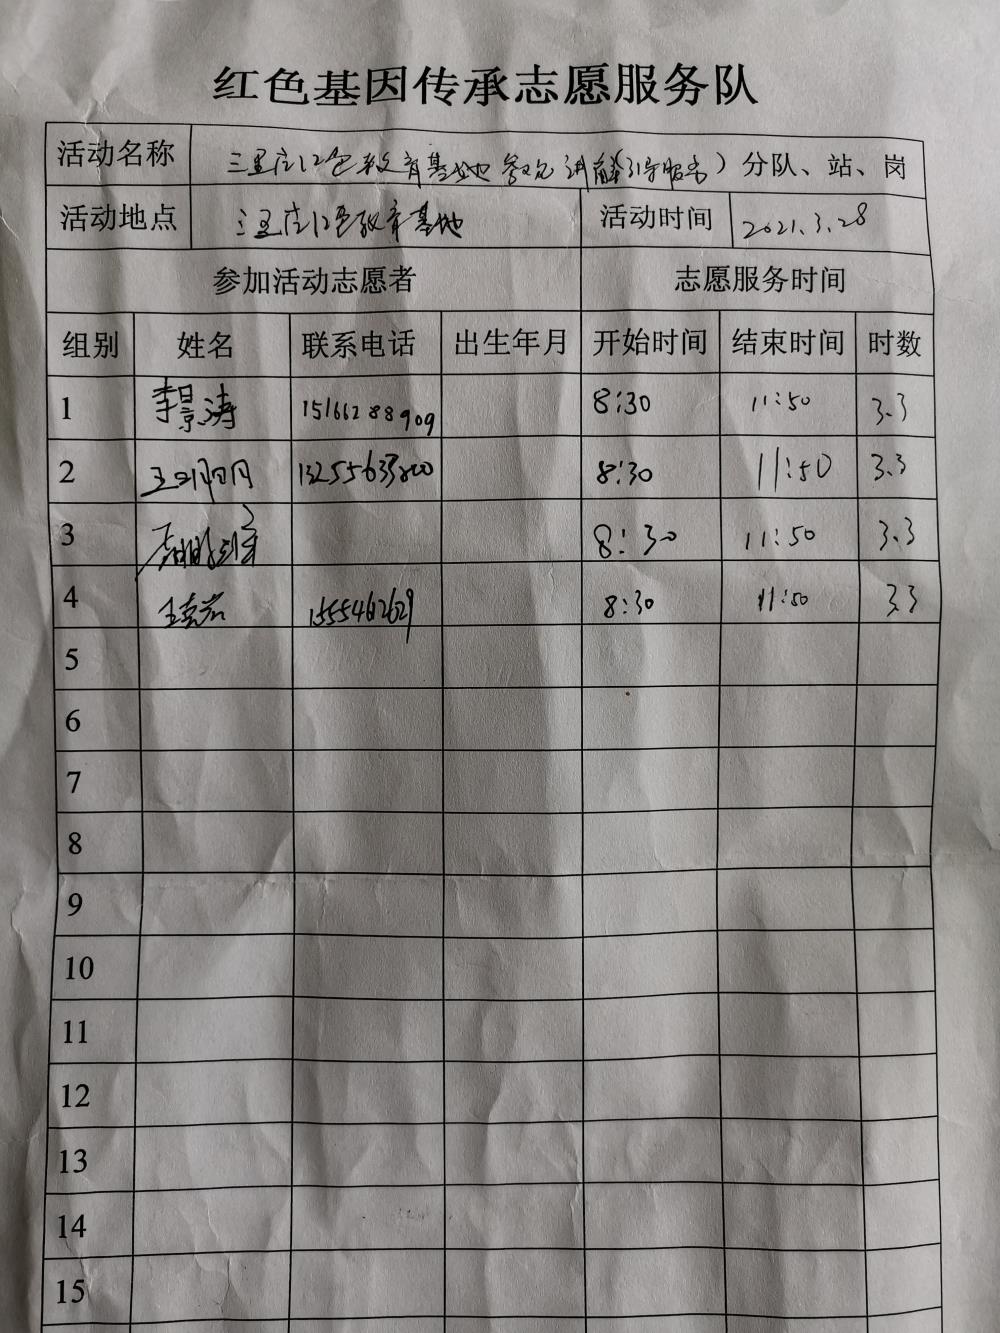 红色基因传承志愿服务队
活动名称 三里庄红色教育基地参观讲解(引导服务）分队、站、岗
活动地点 三里庄红色教育基地 活动时间 2021.3.28
参加活动志愿者 志愿服务时间
组别 姓名 联系电话 出生年月 开始时间 结束时间 时数
1 李景涛 15166288909 8:30 11:50 3.3
2 王 8:30 11:50 3.3
3 8:30 11:50 3.3
4 王 8:30 11:50 3.3
5
6
7
8
9
10
11
12
13
14
15